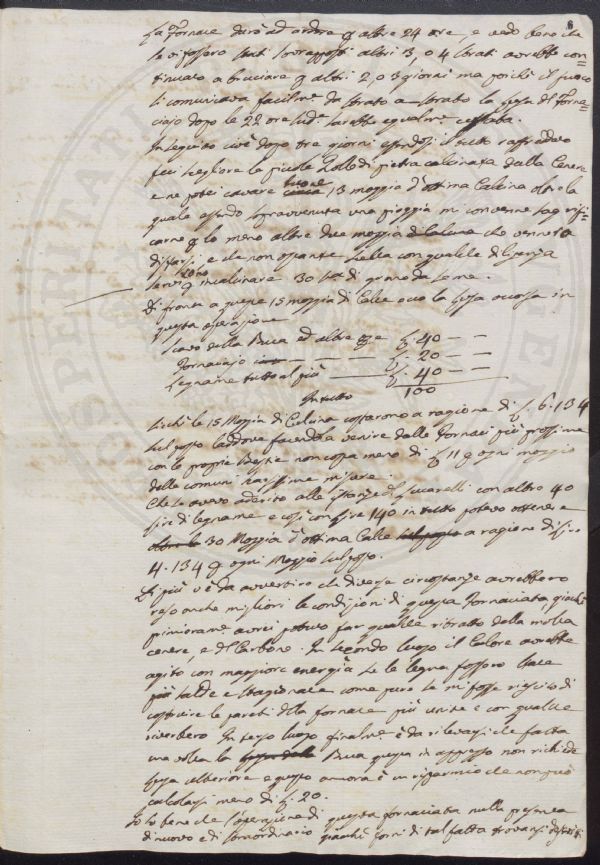 8
La Fornace durò ad ardere p altre 24 ore, e vedo bene che
se vi fossero stati sovrapposti altri 3, o 4 strati avrebbe con=
tinuato a bruciare p altri 2, o 3 giorni ma poiché il fuoco
si comunicava facilm. da strato a strato la spesa del Forna=
ciajo dopo le 22 ore sud. sarebbe egualm. cessata.
In seguito cioè dopo tre giorni essendosi il tutto raffreddato
feci scegliere le piccole Zolle di pietra calcinata dalla Cenere
e ne potei cavare 13 moggia d'ottima Calcina oltre la
quale essendo sopravvenuta una pioggia mi convenne sagrifi=
carne p lo meno altre due moggia di Calcina che vennero a
disfarsi, e che non ostante stella con qualche diligenza
servirono p incalcinare 30 di grano da seme.
Di fronte a queste 15 moggia di Calce ecco la spesa occorsa in
questa operazione
Scavo della Buca ed altre £. 40 — —
Fornaciajo — — — £. 20 — —
Legname tutto al più £. 40 — —
In tutto 100
Sicché le 15 Moggia di Calcina costarono a ragione di £. 6.13.4
sul posto laddove facendola venire dalle Fornaci più prossime
con le proprie Bestie non costa meno di £ 11 p ogni moggio
delle comuni misure.
Che se avevo aderito alle istanze del Lucarelli con altre 40
lire di legname e così con Lire 140 in tutto potevo ottenere
30 Moggia d'ottima Calce sul posto a ragione di Lire
4.13.4 p ogni Moggio sul posto.
Di più v'è da avvertire che diverse circostanze avrebbero
reso anche migliori le condizioni di questa Fornaciata, giacché
primieramente avrei potuto far qualche ritratto della molta
cenere, e del Carbone. In secondo luogo il Calore avrebbe
agito con maggiore energia se le legna fossero state
più salde e stagionate come pure se mi fosse riescito di
costruire le pareti della fornace più unite e con qualche
riverbero. In terzo luogo finalm. è da rilevarsi che fatta
una volta la Buca questa in appresso non richiede
spesa ulteriore e questo ancora è un risparmio che non può
calcolarsi meno di £. 20.
Io so bene che l'operazione di questa fornaciata nulla presenta
di nuovo e di straordinario giacché forni di tal fatta trovansi descritti